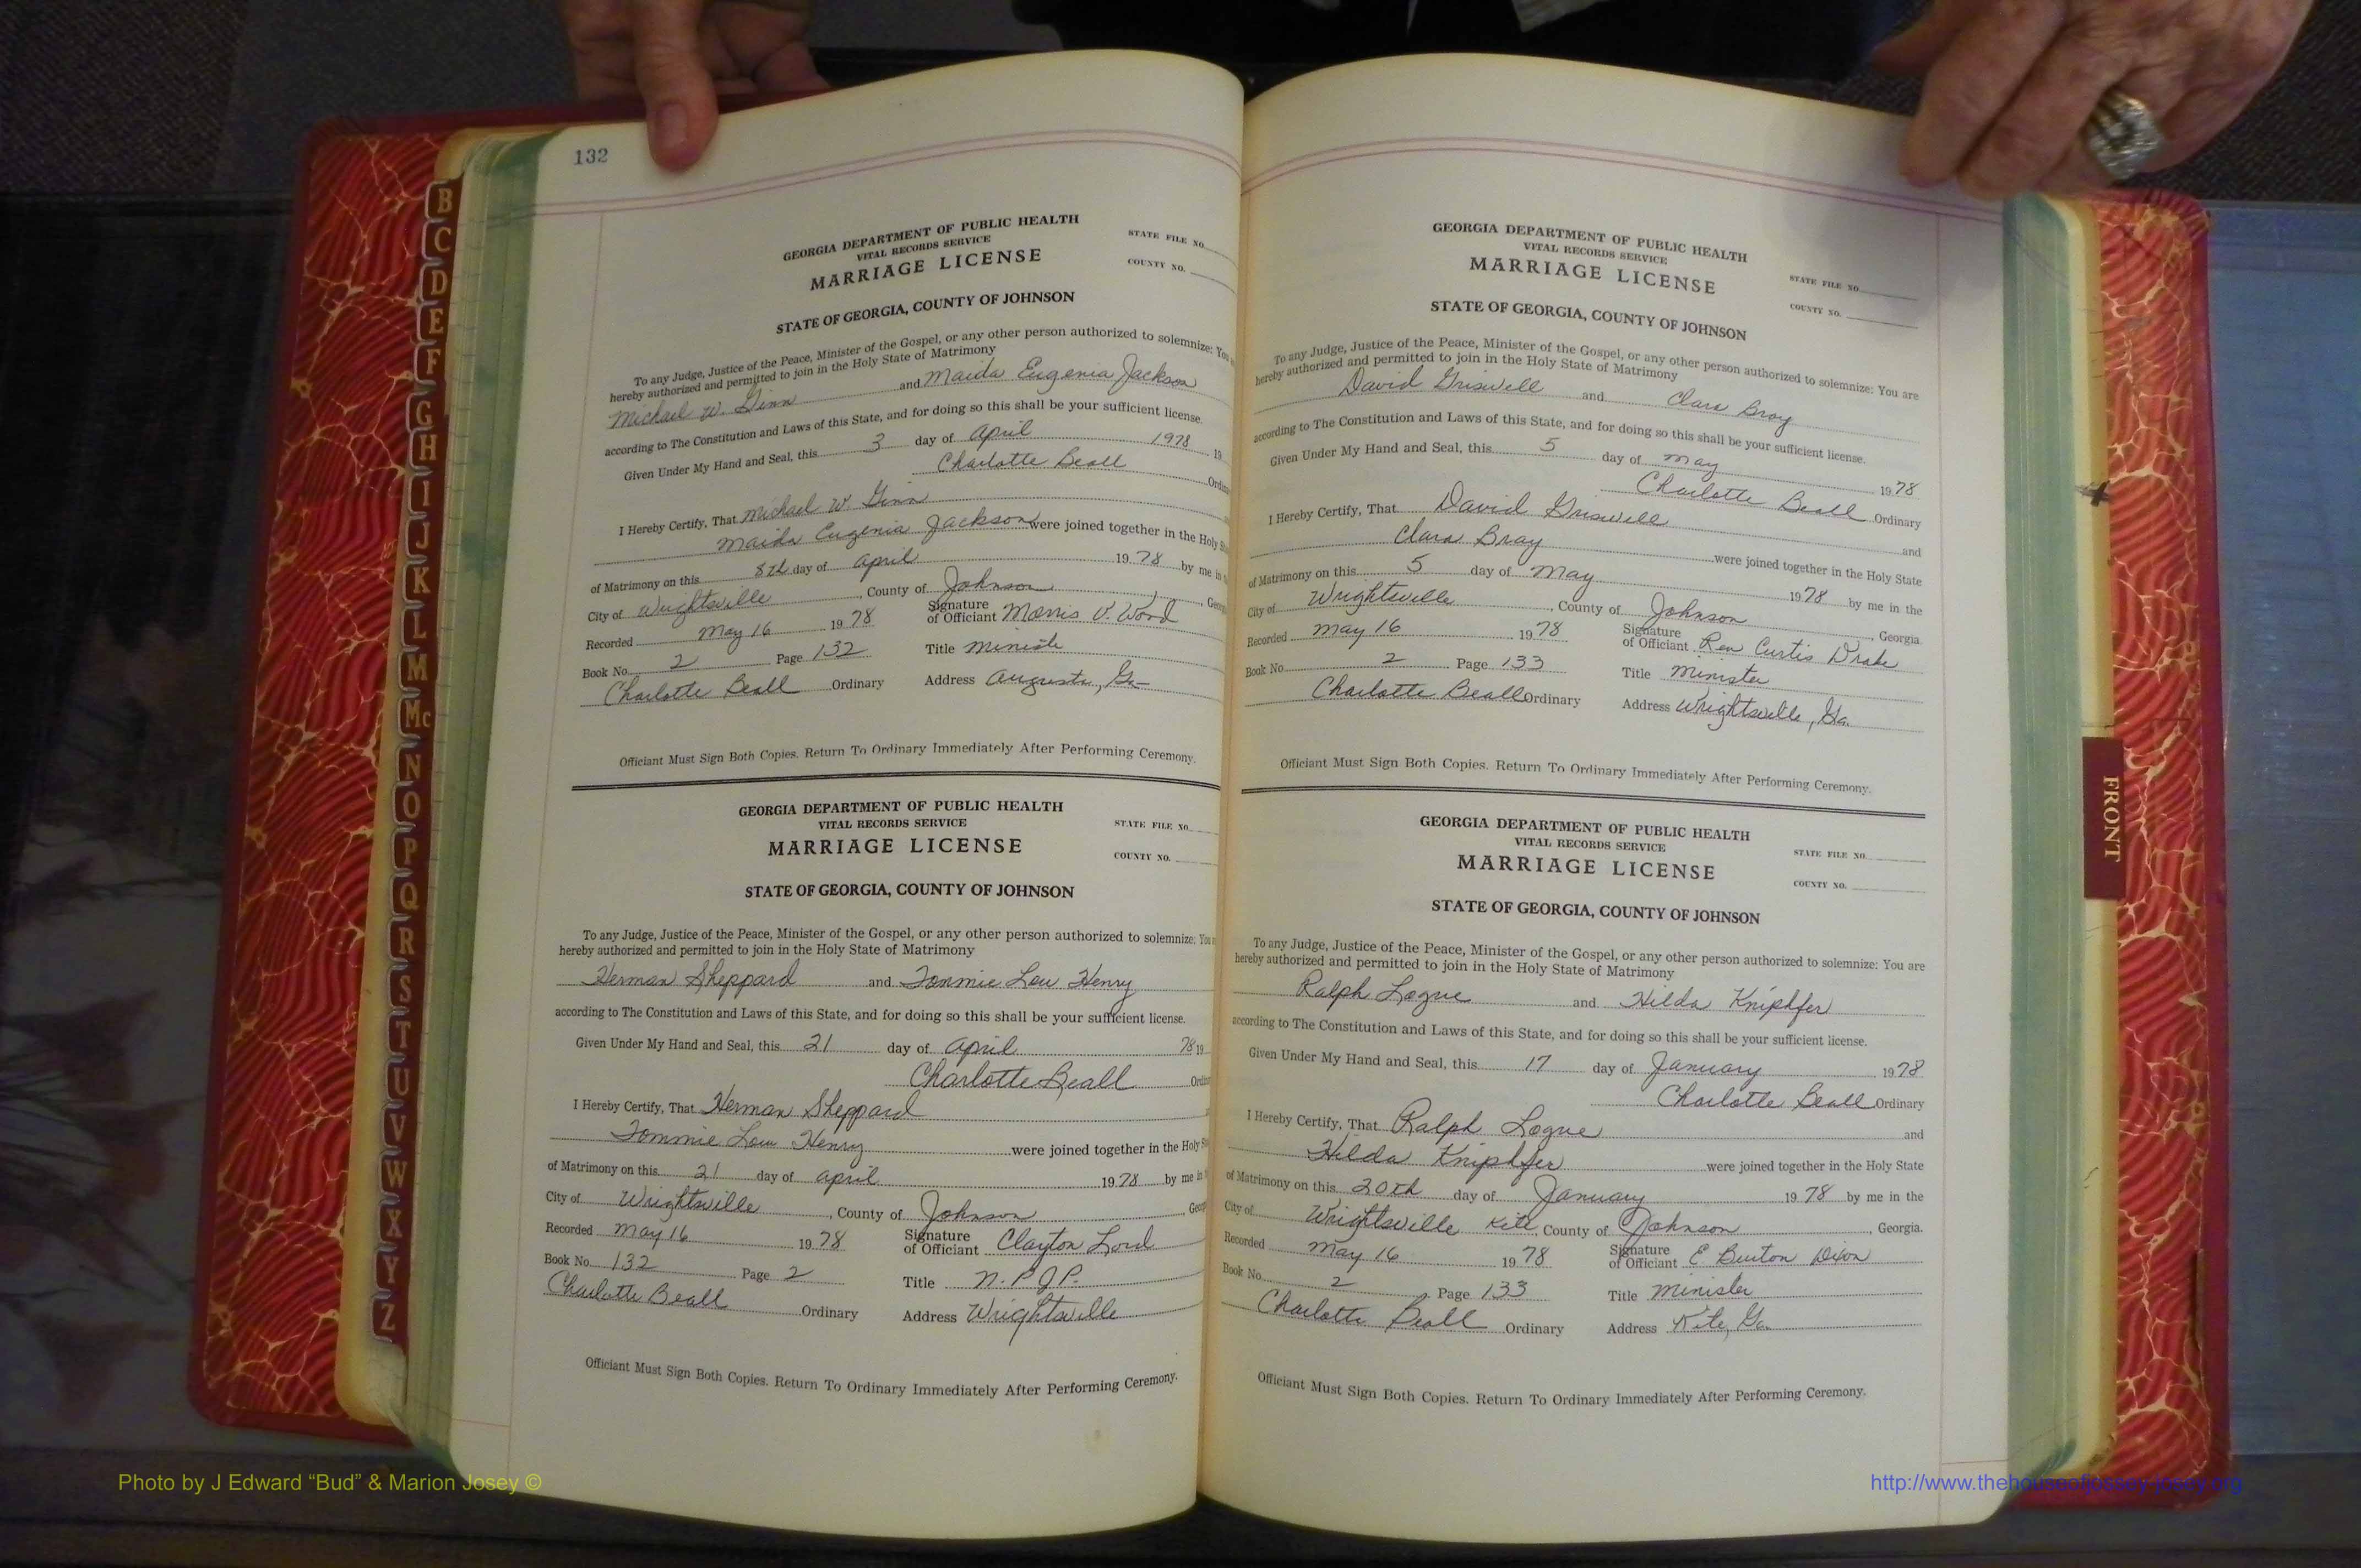 132
B
C
D
E
F
G
H
I
J
K
L
M
Mc
N
O
P
Q
R
S
T
U
V
W
X
Y
Z
GEORGIA DEPARTMENT OF PUBLIC HEALTH
VITAL RECORDS SERVICE
MARRIAGE LICENSE
STATE FILE NO.
COUNTY NO.
STATE OF GEORGIA, COUNTY OF JOHNSON
To any Judge, Justice of the Peace, Minister of the Gospel, or any other person authorized to solemnize: You
hereby authorized and permitted to join in the Holy State of Matrimony
Michael W. Ginn and Maida Eugenia Jackson
according to The Constitution and Laws of this State, and for doing so this shall be your sufficient license.
Given Under My Hand and Seal, this 3 day of April 1978 19
Charlotte Beall
I Hereby Certify, That Michael W. Ginn
Maida Eugenia Jackson were joined together in the Holy
of Matrimony on this 8th day of April 19 78 by me in
City of Wrightsville, County of Johnson
Recorded May 16 19 78 Signature of Officiant Morris V. Word
Book No. 2 Page 132 Title
Charlotte Beall Ordinary Address Augusta, Ga
Officiant Must Sign Both Copies. Return To Ordinary Immediately After Performing Ceremony.
GEORGIA DEPARTMENT OF PUBLIC HEALTH
VITAL RECORDS SERVICE
MARRIAGE LICENSE
STATE FILE NO.
COUNTY NO.
STATE OF GEORGIA, COUNTY OF JOHNSON
To any Judge, Justice of the Peace, Minister of the Gospel, or any other person authorized to solemnize: You
hereby authorized and permitted to join in the Holy State of Matrimony
Herman Sheppard and Tommie Lou Henry
according to The Constitution and Laws of this State, and for doing so this shall be your sufficient license.
Given Under My Hand and Seal, this 21 day of April 78 19
Charlotte Beall
I Hereby Certify, That Herman Sheppard
Tommie Lou Henry were joined together in the Holy
of Matrimony on this 21 day of April 19 78 by me in
City of Wrightsville, County of Johnson
Recorded May 16 19 78 Signature of Officiant Clayton Lord
Book No. 132 Page 2 Title N. P J P.
Charlotte Beall Ordinary Address Wrightsville
Officiant Must Sign Both Copies. Return To Ordinary Immediately After Performing Ceremony.
GEORGIA DEPARTMENT OF PUBLIC HEALTH
VITAL RECORDS SERVICE
MARRIAGE LICENSE
STATE FILE NO.
COUNTY NO.
STATE OF GEORGIA, COUNTY OF JOHNSON
To any Judge, Justice of the Peace, Minister of the Gospel, or any other person authorized to solemnize: You are
hereby authorized and permitted to join in the Holy State of Matrimony
David Griswell and Clara Bray
according to The Constitution and Laws of this State, and for doing so this shall be your sufficient license.
Given Under My Hand and Seal, this 5 day of May 19 78
Charlotte Beall Ordinary
I Hereby Certify, That David Griswell and
Clara Bray were joined together in the Holy State
of Matrimony on this 5 day of May 19 78 by me in the
City of Wrightsville, County of Johnson, Georgia.
Recorded May 16 19 78 Signature of Officiant Rev Curtis Drake
Book No 2 Page 133 Title Minister
Charlotte Beall Ordinary Address Wrightsville, Ga.
Officiant Must Sign Both Copies. Return To Ordinary Immediately After Performing Ceremony.
GEORGIA DEPARTMENT OF PUBLIC HEALTH
VITAL RECORDS SERVICE
MARRIAGE LICENSE
STATE FILE NO.
COUNTY NO.
STATE OF GEORGIA, COUNTY OF JOHNSON
To any Judge, Justice of the Peace, Minister of the Gospel, or any other person authorized to solemnize: You are
hereby authorized and permitted to join in the Holy State of Matrimony
Ralph Logue and Hilda Kniphfer
according to The Constitution and Laws of this State, and for doing so this shall be your sufficient license.
Given Under My Hand and Seal, this 17 day of January 19 78
Charlotte Beall Ordinary
I Hereby Certify, That Ralph Logue and
Hilda Kniphfer were joined together in the Holy State
of Matrimony on this 20th day of January 19 78 by me in the
City of Wrightsville Kite, County of Johnson, Georgia.
Recorded May 16 19 78 Signature of Officiant E Burton Dixon
Book No. 2 Page 133 Title Minister
Charlotte Beall Ordinary Address Kite, Ga.
Officiant Must Sign Both Copies. Return To Ordinary Immediately After Performing Ceremony.
FRONT
Photo by J Edward “Bud” & Marion Josey ©
http://www.thehouseofjossey-josey.org